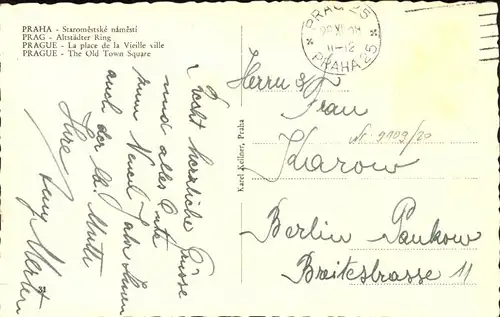 PRAHA - Staroměstské náměstí
PRAG - Altstädter Ring
PRAGUE - La place de la Vieille ville
PRAGUE - The Old Town Square
PRAG 25
11-12
PRAHA 25
Recht herzliche Grüsse
und alles Gute
zum Neuen Jahr Ihnen
auch der lb. Mutti
Ihre
Karel Kellner, Praha
Herrn u.
Frau
Karow
Nr. 9109/20
Berlin Pankow
Breitestrasse 11